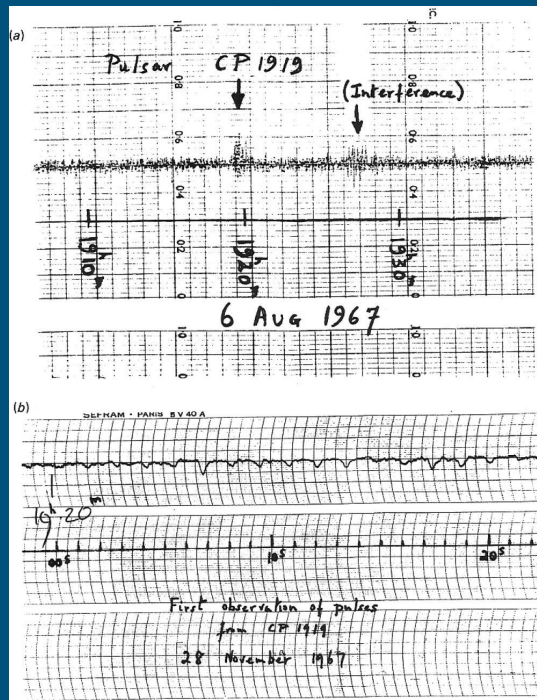 (a)
Pulsar CP 1919
(Interference)
1.0
0.8
0.6
0.4
0.2
0
1.0
0.8
0.6
0.4
0.2
0
19h10m
19h20m
19h30m
6 AUG 1967
1.0
1.0
(b)
SEFRAM - PARIS BV 40 A
19h.20m
00s
10s
20s
First observation of pulses
from CP 1919
28 November 1967